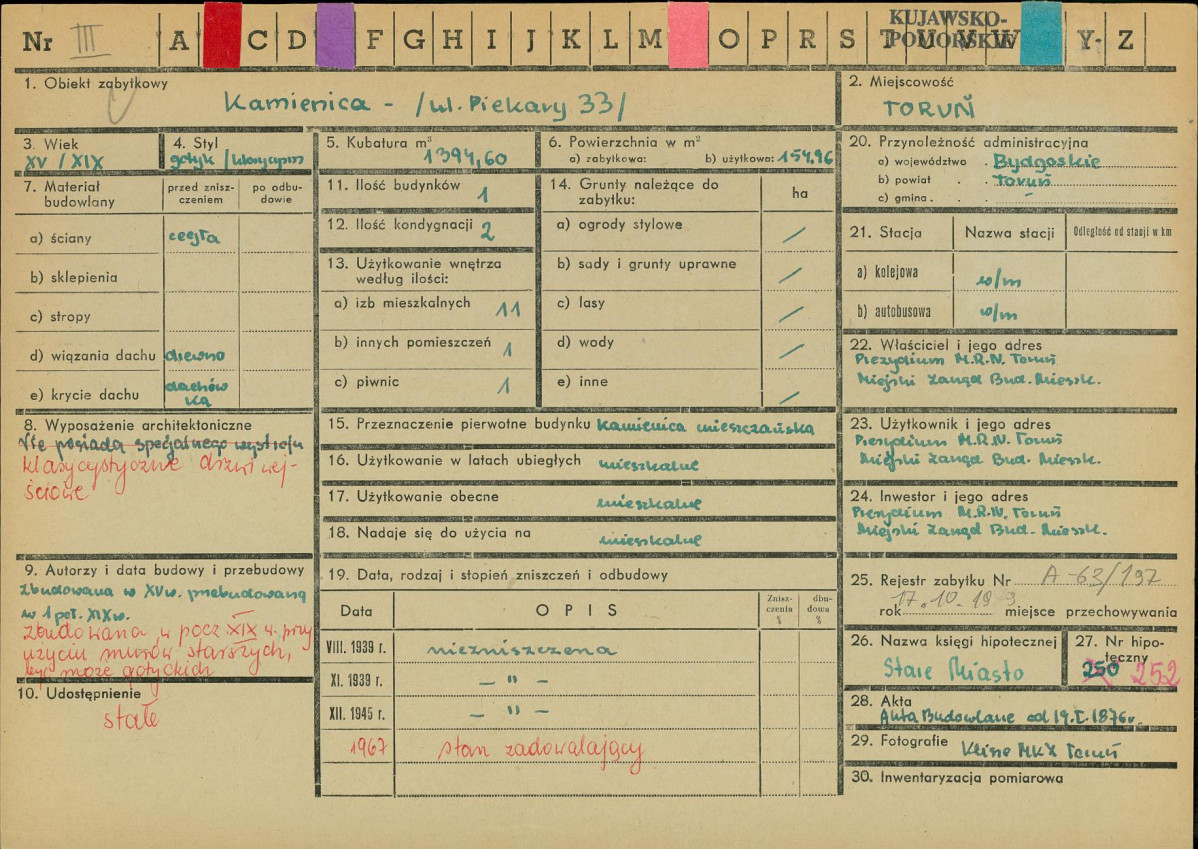 Nr III A C D F G H I J K L M O P R S T U V W Y- Z
KUJAWSKO-
POMORSKIE
1. Obiekt zabytkowy
Kamienica - /ul. Piekary 33/
2. Miejscowość
TORUŃ
3. Wiek
XV / XIX
4. Styl
gotyk / klasycyzm
5. Kubatura m³
1394,60
6. Powierzchnia w m²
a) zabytkowa: b) użytkowa: 154,96
7. Materiał budowlany
przed znisz-
czeniem
po odbu-
dowie
a) ściany cegła
b) sklepienia
c) stropy
d) wiązania dachu drewno
e) krycie dachu dachów
ka
8. Wyposażenie architektoniczne
Nie posiada specjalnego wystroju
klasycystyczne drzwi wej-
ściowe
9. Autorzy i data budowy i przebudowy
zbudowana w XV w. przebudowana
w 1 poł. XIX w.
zbudowana w pocz XIX w. przy
użyciu murów starszych,
być może gotyckich
10. Udostępnienie
stałe
11. Ilość budynków 1
12. Ilość kondygnacji 2
13. Użytkowanie wnętrza
według ilości:
a) izb mieszkalnych 11
b) innych pomieszczeń 1
c) piwnic 1
14. Grunty należące do
zabytku:
ha
a) ogrody stylowe /
b) sady i grunty uprawne /
c) lasy /
d) wody /
e) inne /
15. Przeznaczenie pierwotne budynku kamienica mieszczańska
16. Użytkowanie w latach ubiegłych mieszkalne
17. Użytkowanie obecne mieszkalne
18. Nadaje się do użycia na mieszkalne
19. Data, rodzaj i stopień zniszczeń i odbudowy
Data OPIS
Znisz-
czenia
%
dbu-
dowa
%
VIII. 1939 r. niezniszczona
XI. 1939 r. — " —
XII. 1945 r. — " —
1967 stan zadowalający
20. Przynależność administracyjna
a) województwo Bydgoskie
b) powiat Toruń
c) gmina -
21. Stacja Nazwa stacji Odległość od stacji w km
a) kolejowa w/m
b) autobusowa w/m
22. Właściciel i jego adres
Prezydium M.R.N. Toruń
Miejski Zarząd Bud. Mieszk.
23. Użytkownik i jego adres
Prezydium M.R.N. Toruń
Miejski Zarząd Bud. Mieszk.
24. Inwestor i jego adres
Prezydium M.R.N. Toruń
Miejski Zarząd Bud. Mieszk.
25. Rejestr zabytku Nr A-63/197
rok 17.10.19 3 miejsce przechowywania
26. Nazwa księgi hipotecznej
Stare Miasto
27. Nr hipo-
teczny
250 252
28. Akta
Akta Budowlane od 19.I.1876r.
29. Fotografie Klisze MKZ Toruń
30. Inwentaryzacja pomiarowa